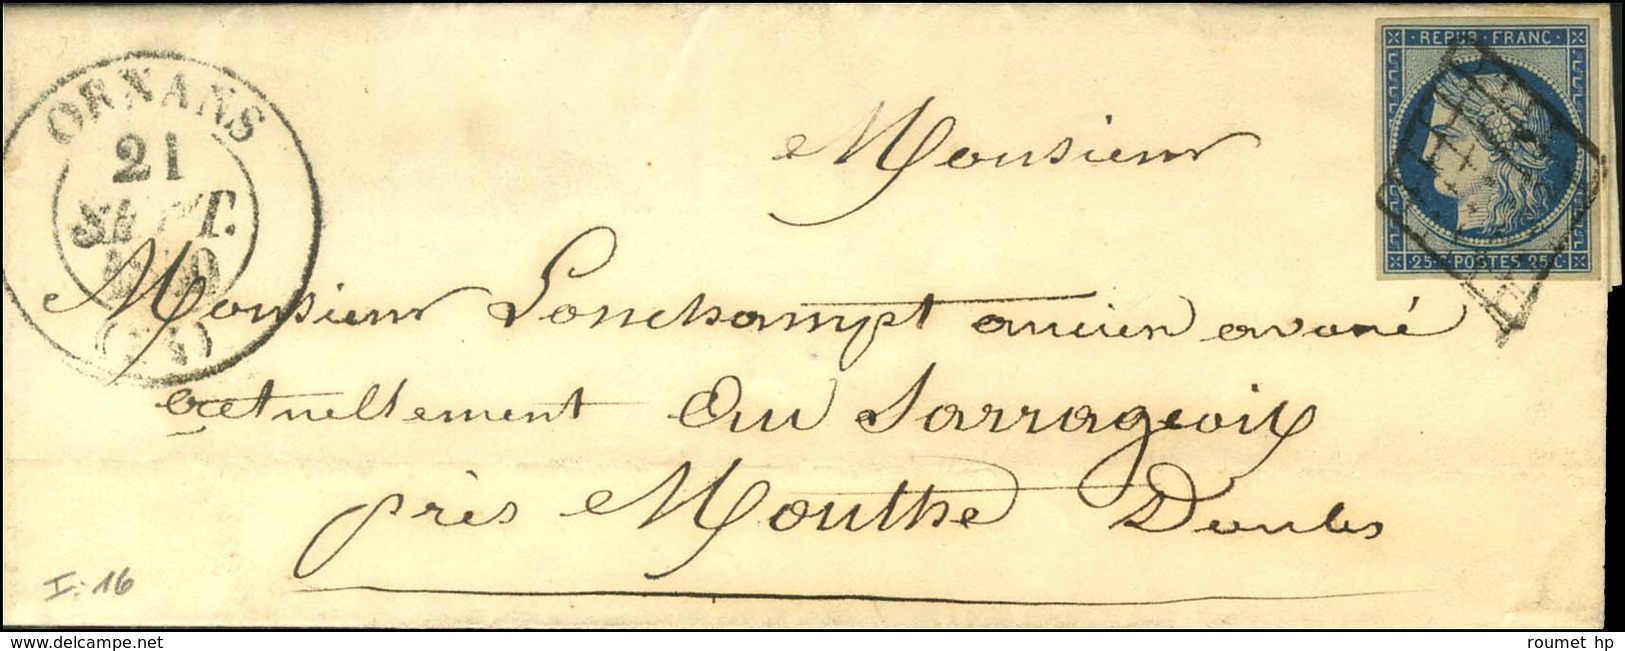 ORNANS
21
SEPT.
1850
(24)
REPUB FRANC
25 POSTES 25 C
Monsieur
Monsieur Lonchampt ancien avoué
actuellement au Sarrageoix
près Mouthe Doubs
I. 16
www.delcampe.net
roumet hp